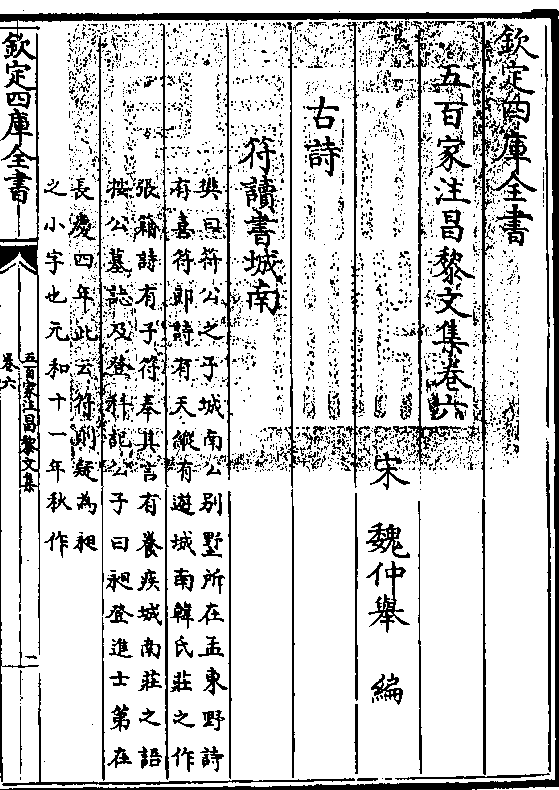 欽定四庫全書
五百家注昌黎文集卷六
宋 魏仲舉 編
古詩
符讀書城南
樊曰符公之子城南公别墅所在孟東野詩
有喜符郎詩有天縱有遊城南韓氏莊之作
張籍詩有子符奉其言有養疾城南莊之語
按公墓誌及登科記公子曰昶登進士第在
長慶四年此云符則疑為昶
之小字也元和十一年秋作
欽定四庫全書
五百家注昌黎文集
卷六
一